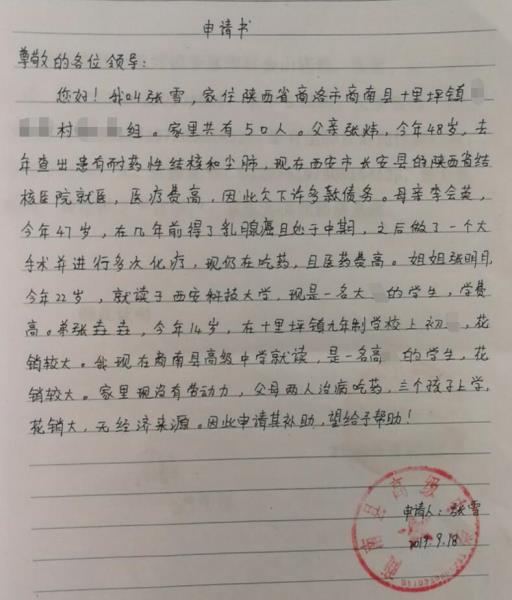 申请书
尊敬的各位领导:
您好!我叫张雪,家住陕西省商洛市商南县十里坪镇
村 组。家里共有50人。父亲张炜,今年48岁,去
年查出患有耐药性结核和尘肺,现在西安市长安县的陕西省结
核医院就医,医疗费高,因此欠下许多款债务。母亲李会英,
今年47岁,在几年前得了乳腺癌且处于中期,之后做了一个大
手术并进行多次化疗,现仍在吃药,且医药费高。姐姐张明月,
今年22岁,就读于西安科技大学,现是一名大 的学生,学费
高。弟张垚垚,今年14岁,在十里坪镇九年制学校上初 ,花
销较大。我现在商南县高级中学就读,是一名高 的学生,花
销较大。家里现没有劳动力,父母两人治病吃药,三个孩子上学,
花销大,无经济来源。因此申请其补助,望给予帮助!
申请人:张雪
2019.9.18
商南县高级中学